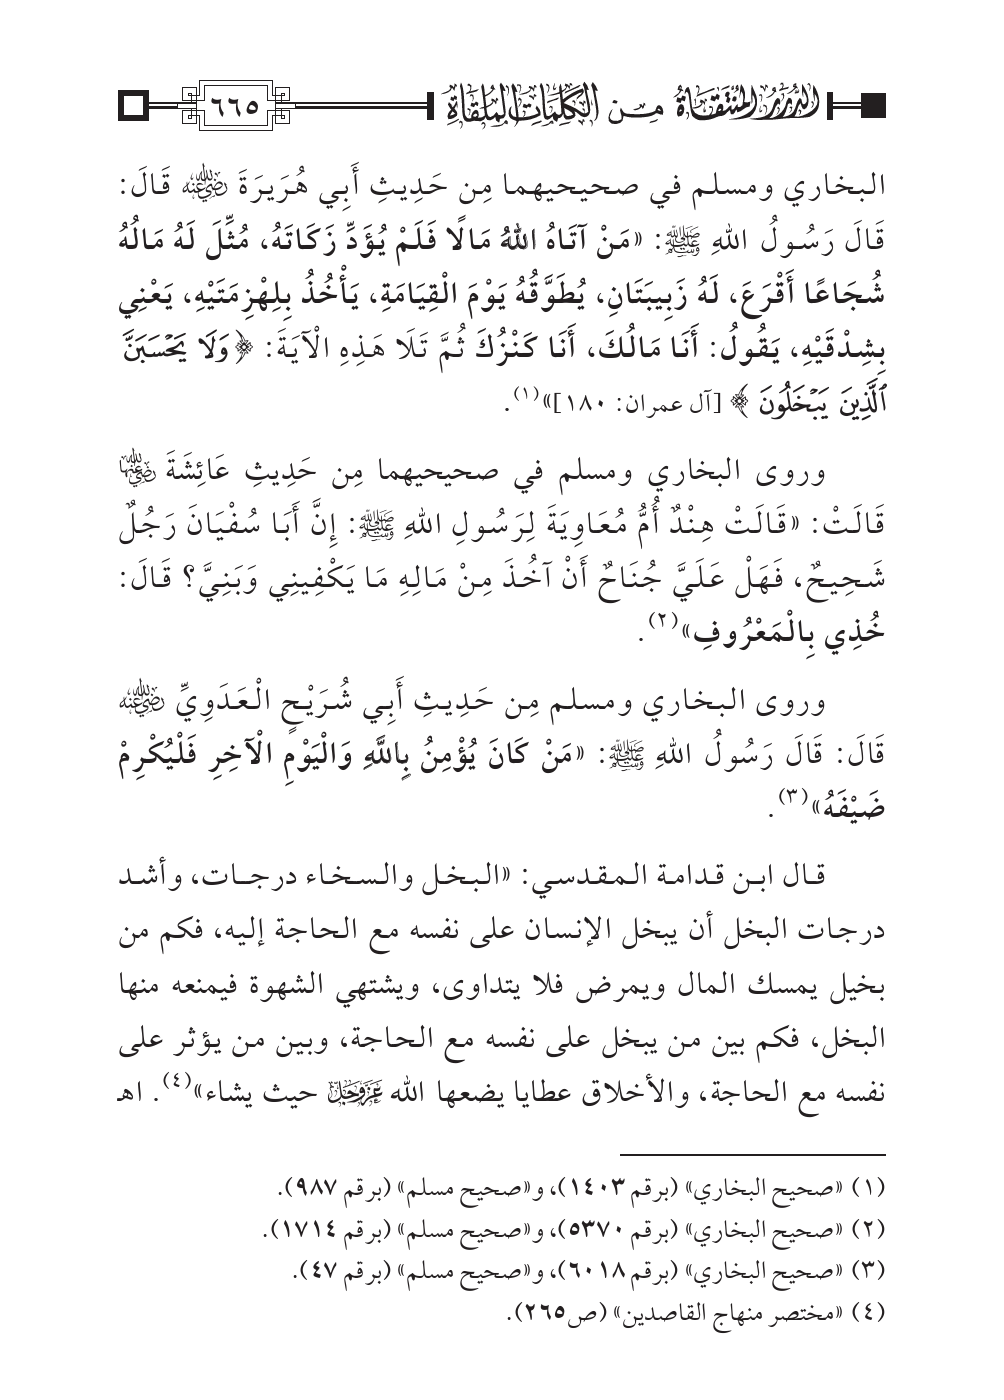 الدُّرَرُ المُنْتَقَاةُ مِن الكَلِمَاتِ المُلْقَاةِ
٦٦٥
البخاري ومسلم في صحيحيهما مِن حَدِيثِ أَبِي هُرَيرَةَ رضي الله عنه قَالَ:
قَالَ رَسُولُ اللهِ ﷺ: «مَنْ آتَاهُ اللهُ مَالًا فَلَمْ يُؤَدِّ زَكَاتَهُ، مُثِّلَ لَهُ مَالُهُ
شُجَاعًا أَقْرَعَ، لَهُ زَبِيبَتَانِ، يُطَوَّقُهُ يَوْمَ الْقِيَامَةِ، يَأْخُذُ بِلِهْزِمَتَيْهِ، يَعْنِي
بِشِدْقَيْهِ، يَقُولُ: أَنَا مَالُكَ، أَنَا كَنْزُكَ ثُمَّ تَلَا هَذِهِ الْآيَةَ: ﴿وَلَا يَحْسَبَنَّ
ٱلَّذِينَ يَبْخَلُونَ﴾ [آل عمران: ١٨٠]»(١).
وروى البخاري ومسلم في صحيحيهما مِن حَدِيثِ عَائِشَةَ رضي الله عنها
قَالَتْ: «قَالَتْ هِنْدٌ أُمُّ مُعَاوِيَةَ لِرَسُولِ اللهِ ﷺ: إِنَّ أَبَا سُفْيَانَ رَجُلٌ
شَحِيحٌ، فَهَلْ عَلَيَّ جُنَاحٌ أَنْ آخُذَ مِنْ مَالِهِ مَا يَكْفِينِي وَبَنِيَّ؟ قَالَ:
خُذِي بِالْمَعْرُوفِ»(٢).
وروى البخاري ومسلم مِن حَدِيثِ أَبِي شُرَيْحٍ الْعَدَوِيِّ رضي الله عنه
قَالَ: قَالَ رَسُولُ اللهِ ﷺ: «مَنْ كَانَ يُؤْمِنُ بِاللَّهِ وَالْيَوْمِ الْآخِرِ فَلْيُكْرِمْ
ضَيْفَهُ»(٣).
قال ابن قدامة المقدسي: «البخل والسخاء درجات، وأشد
درجات البخل أن يبخل الإنسان على نفسه مع الحاجة إليه، فكم من
بخيل يمسك المال ويمرض فلا يتداوى، ويشتهي الشهوة فيمنعه منها
البخل، فكم بين من يبخل على نفسه مع الحاجة، وبين من يؤثر على
نفسه مع الحاجة، والأخلاق عطايا يضعها الله عز وجل حيث يشاء»(٤). اهـ
(١) «صحيح البخاري» (برقم ١٤٠٣)، و«صحيح مسلم» (برقم ٩٨٧).
(٢) «صحيح البخاري» (برقم ٥٣٧٠)، و«صحيح مسلم» (برقم ١٧١٤).
(٣) «صحيح البخاري» (برقم ٦٠١٨)، و«صحيح مسلم» (برقم ٤٧).
(٤) «مختصر منهاج القاصدين» (ص٢٦٥).